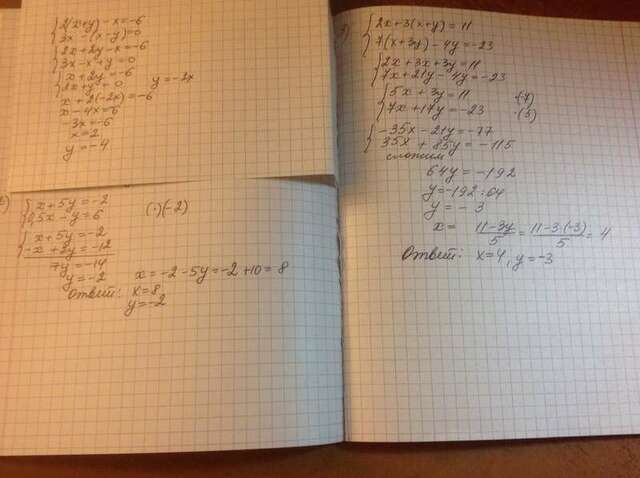 2(x+y)-x=-6
3x-(x-y)=0
2x+2y-x=-6
3x-x+y=0
x+2y=-6
2x+y=0 y=-2x
x+2(-2x)=-6
x-4x=-6
-3x=-6
x=2
y=-4
x+5y=-2
0,5x-y=6 (·)(-2)
x+5y=-2
-x+2y=-12
7y=-14
y=-2 x=-2-5y=-2+10=8
Ответ: x=8
y=-2
2x+3(x+y)=11
7(x+3y)-4y=-23
2x+3x+3y=11
7x+21y-4y=-23
5x+3y=11 ·(-7)
7x+17y=-23 ·(5)
-35x-21y=-77
35x+85y=-115
сложим
64y=-192
y=-192:64
y=-3
x= 11-3y/5 = 11-3·(-3)/5 = 4
Ответ: x=4, y=-3